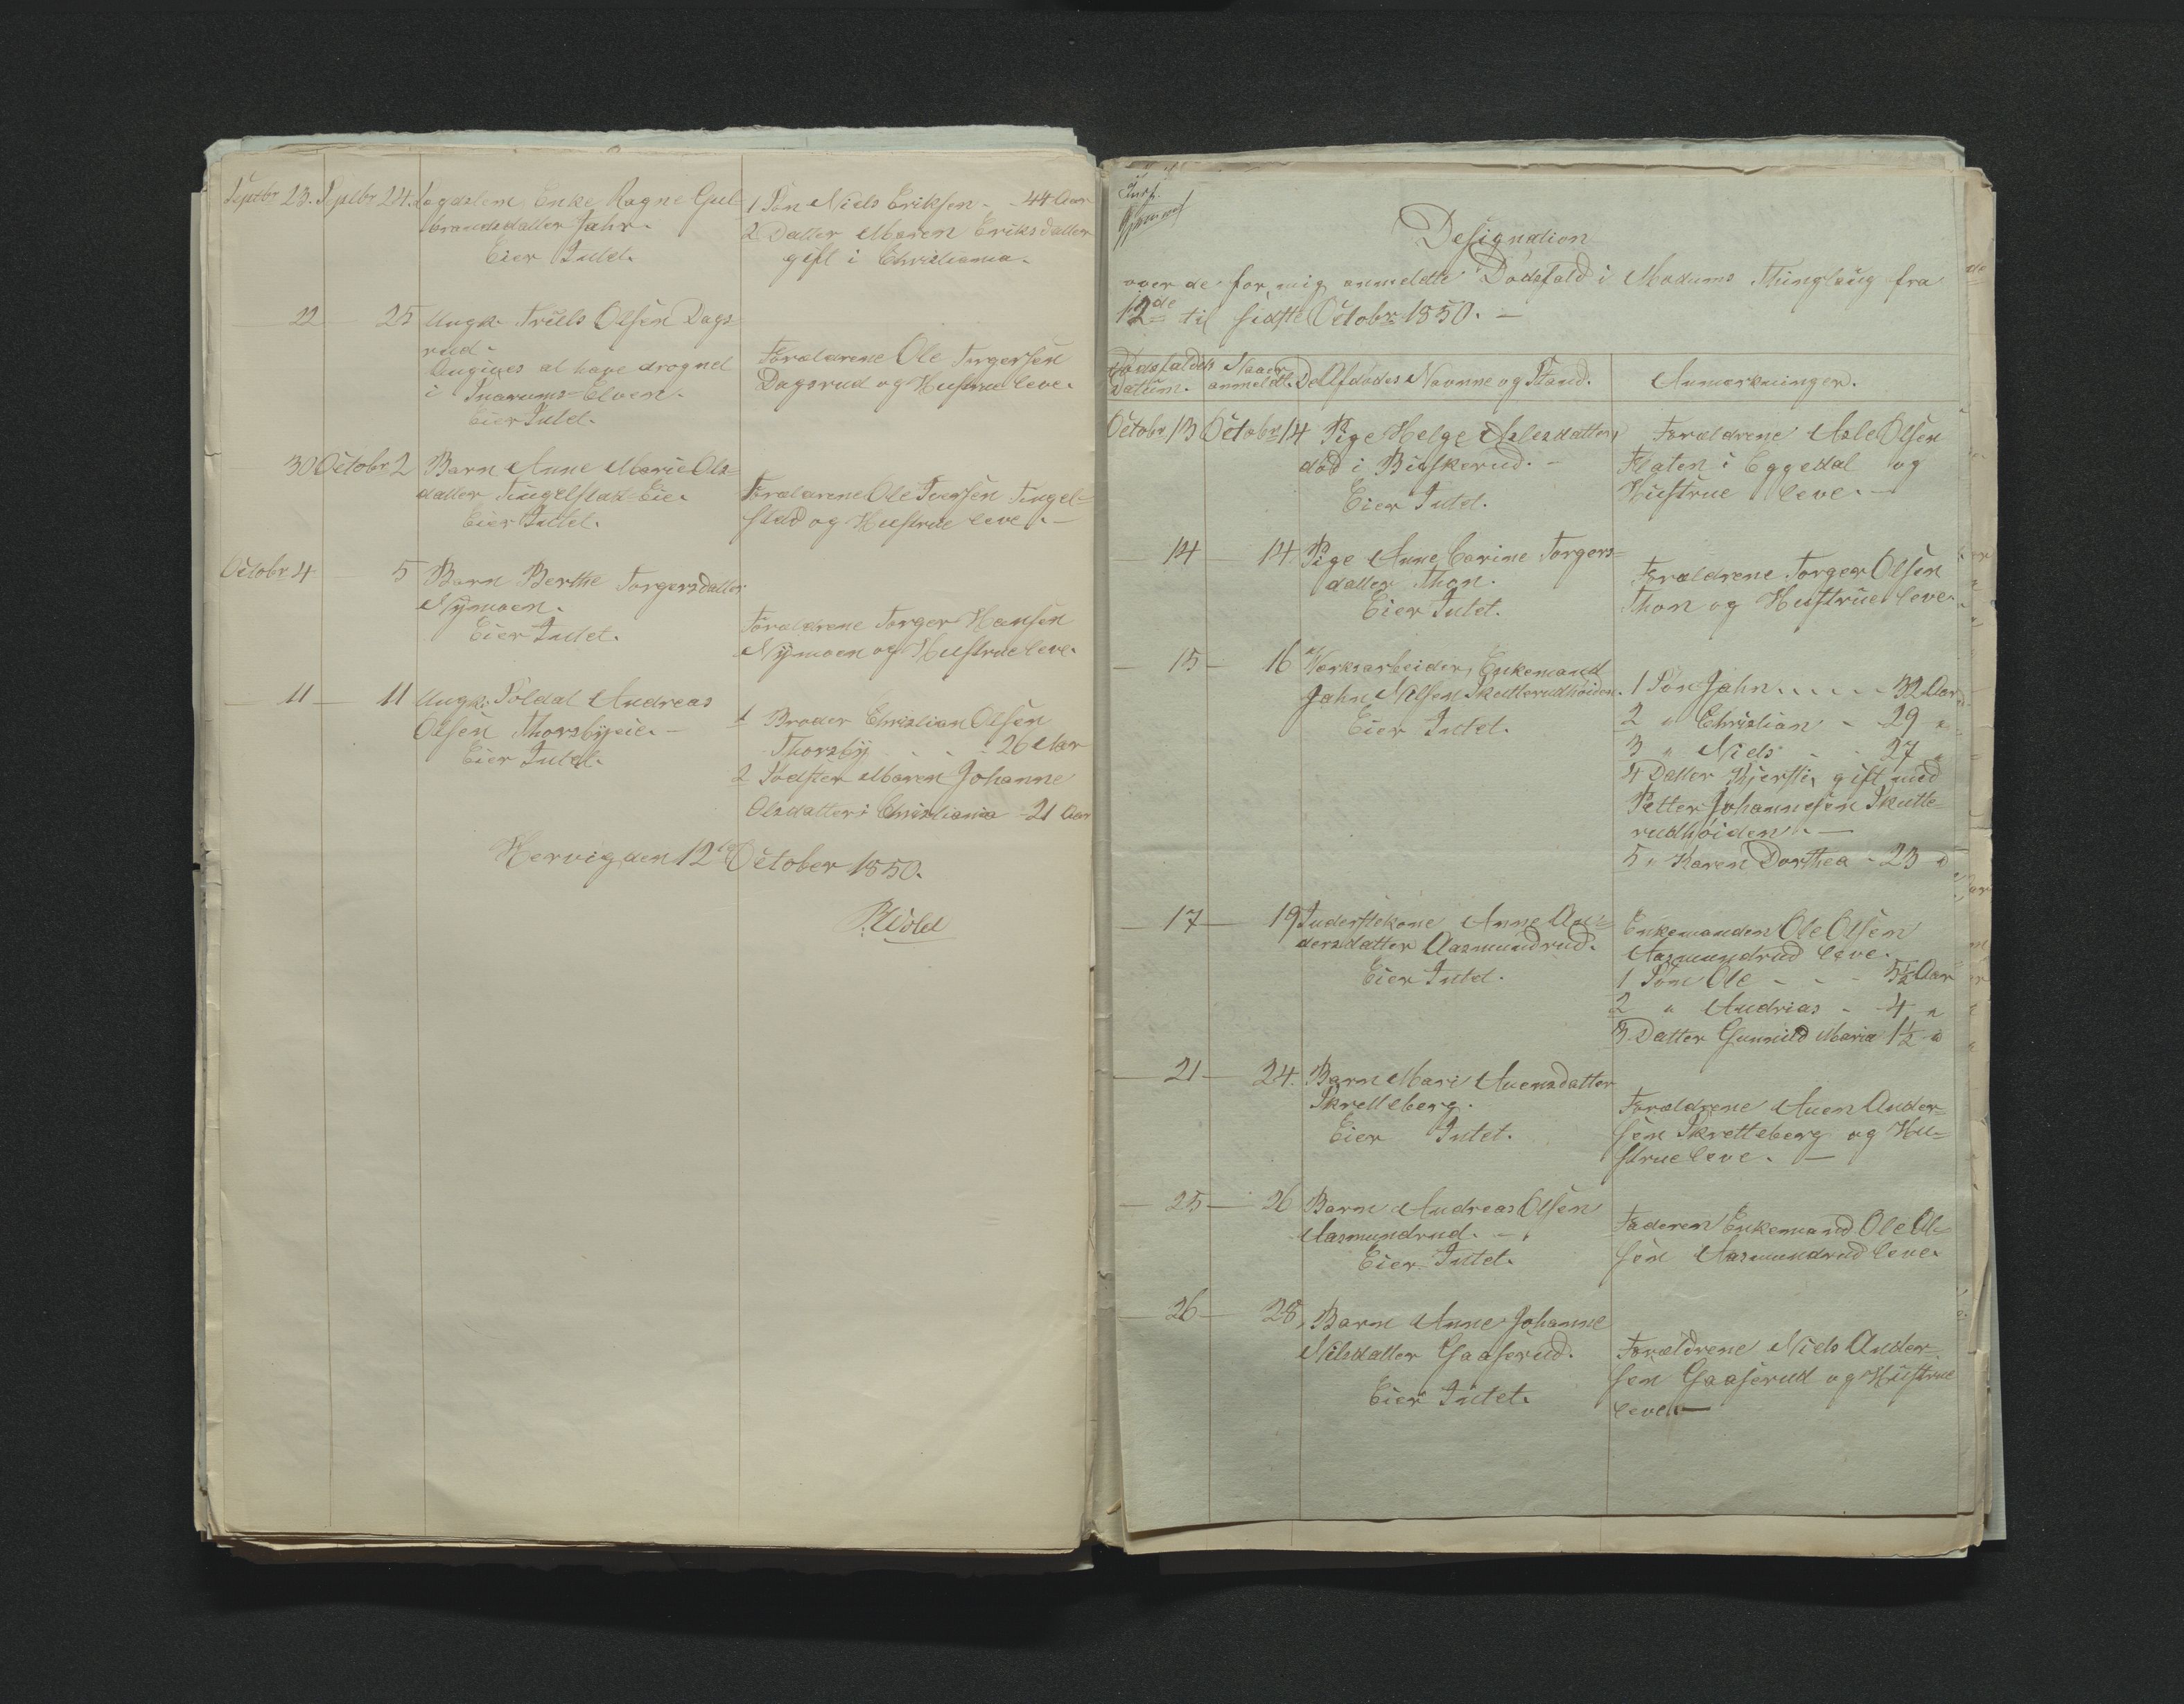 Septbr 23. Septbr 24. Logdslem Enke Ragne Gul-
brandsdatter Jahr.
Eier Intet.
1 Søn Niels Eriksen - - 44 Aar
2 Datter Maren Eriksdatter
gift i Christiania.
22 — 25 Ungk. Truls Olsen Dags-
rud.
Angives at have drognet
i Snarums-Elven.
Eier Intet.
Forældrene Ole Torgersen
Dagsrud og Hustrue leve.
30 Octobr 2 Barn Anne Marie Ols-
datter Tingelstad Eie.
Eier Intet.
Forældrene Ole Iversen Tingel-
stad og Hustrue leve. —
Octobr 4 — 5 Barn Berthe Torgersdatter
Nÿmoen.
Eier Intet.
Forældrene Torger Hansen
Nÿmoen og Hustrue leve.
11 — 11 Ungk. Soldat Andreas
Olsen Thorsbÿeie. —
Eier Intet.
1 Broder Christian Olsen
Thorsbÿ - - - 26 Aar
2 Sødster Maren Johanne
Olsdatter i Christiania - 21 Aar
Hervig den 12te October 1850.
Wold
Designation
over de for mig anmeldte Dødsfald i Modums Thinglaug fra
12de til sidste Octobr 1850. —
Dødsfaldets
Datum.
Naar
anmeldt.
De Afdødes Navnne og Stand.
Anmærkninger.
Octobr 13 Octobr 14 Pige Helge Aslesdatter,
død i Buskerud. —
Eier Intet.
Forældrene Asle Olsen
Flaten i Eggedal og
Hustrue leve. —
— 14 — 14 Pige Anne Carine Torgers-
datter Thon.
Eier Intet.
Forældrene Torger Olsen
Thon og Hustrue leve.
— 15 — 16 Værksarbeider, Enkemand
Jahn Nilsen Skutterudhøiden.
Eier Intet.
1 Søn Jahn . . . . - 32 Aar
2 " Christian - 29 "
3 " Niels - - 27 "
4 Datter Kjersti, gift med
Petter Johannesen Skutte-
rudhøiden. —
5 " Karen Dorthea - 23 "
— 17 — 19 Inderstekone Anne An-
dersdatter Aasmundrud.
Eier Intet.
Enkemanden Ole Olsen
Aasmundrud leve.
1 Søn Ole - - - 5½ Aar
2 " Andrias - - 4 "
3 Datter Gunnild Maria 1½ "
— 21 — 24. Barn Mari Auensdatter
Skretteberg.
Eier Intet.
Forældrene Auen Ander-
sen Skretteberg og Hu-
strue leve. —
— 25 — 26 Barn Andreas Olsen
Aasmundrud. —
Eier Intet.
Faderen Enkemand Ole Ol-
sen Aasmundrud leve.
— 26 — 28, Barn Anne Johanne
Nilsdatter Gaaserud.
Eier Intet.
Forældrene Niels Ander-
sen Gaaserud og Hustrue
leve. —